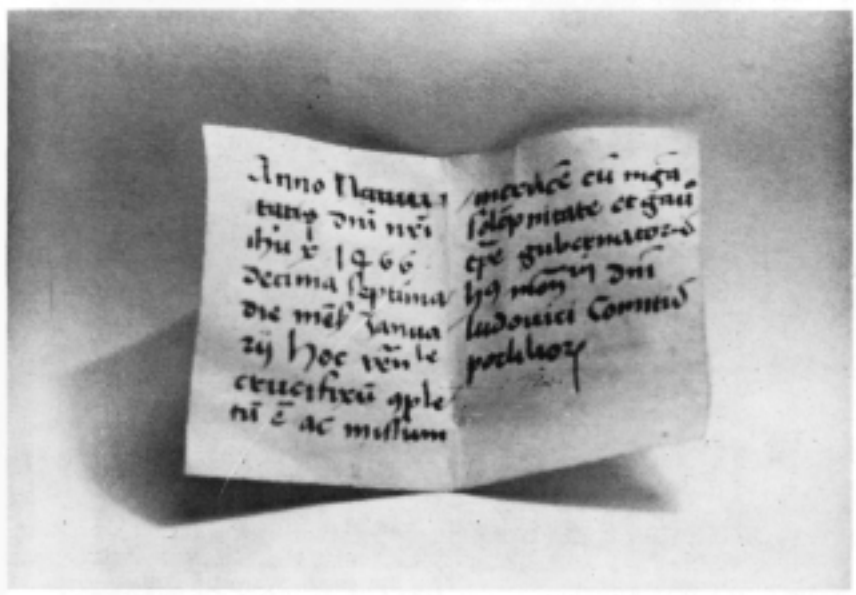 Anno Natiui
tatis dnī nr̄i
ihū x̄ 1466
decima septima
die mēs̄ Janua
rij hoc ven̄le
crucifixū ꝯple
tū ē ac missum
cū mgā
solēpnitate et gau
tp̄e gubernator
hꝯ dnī
ludouici Comitis